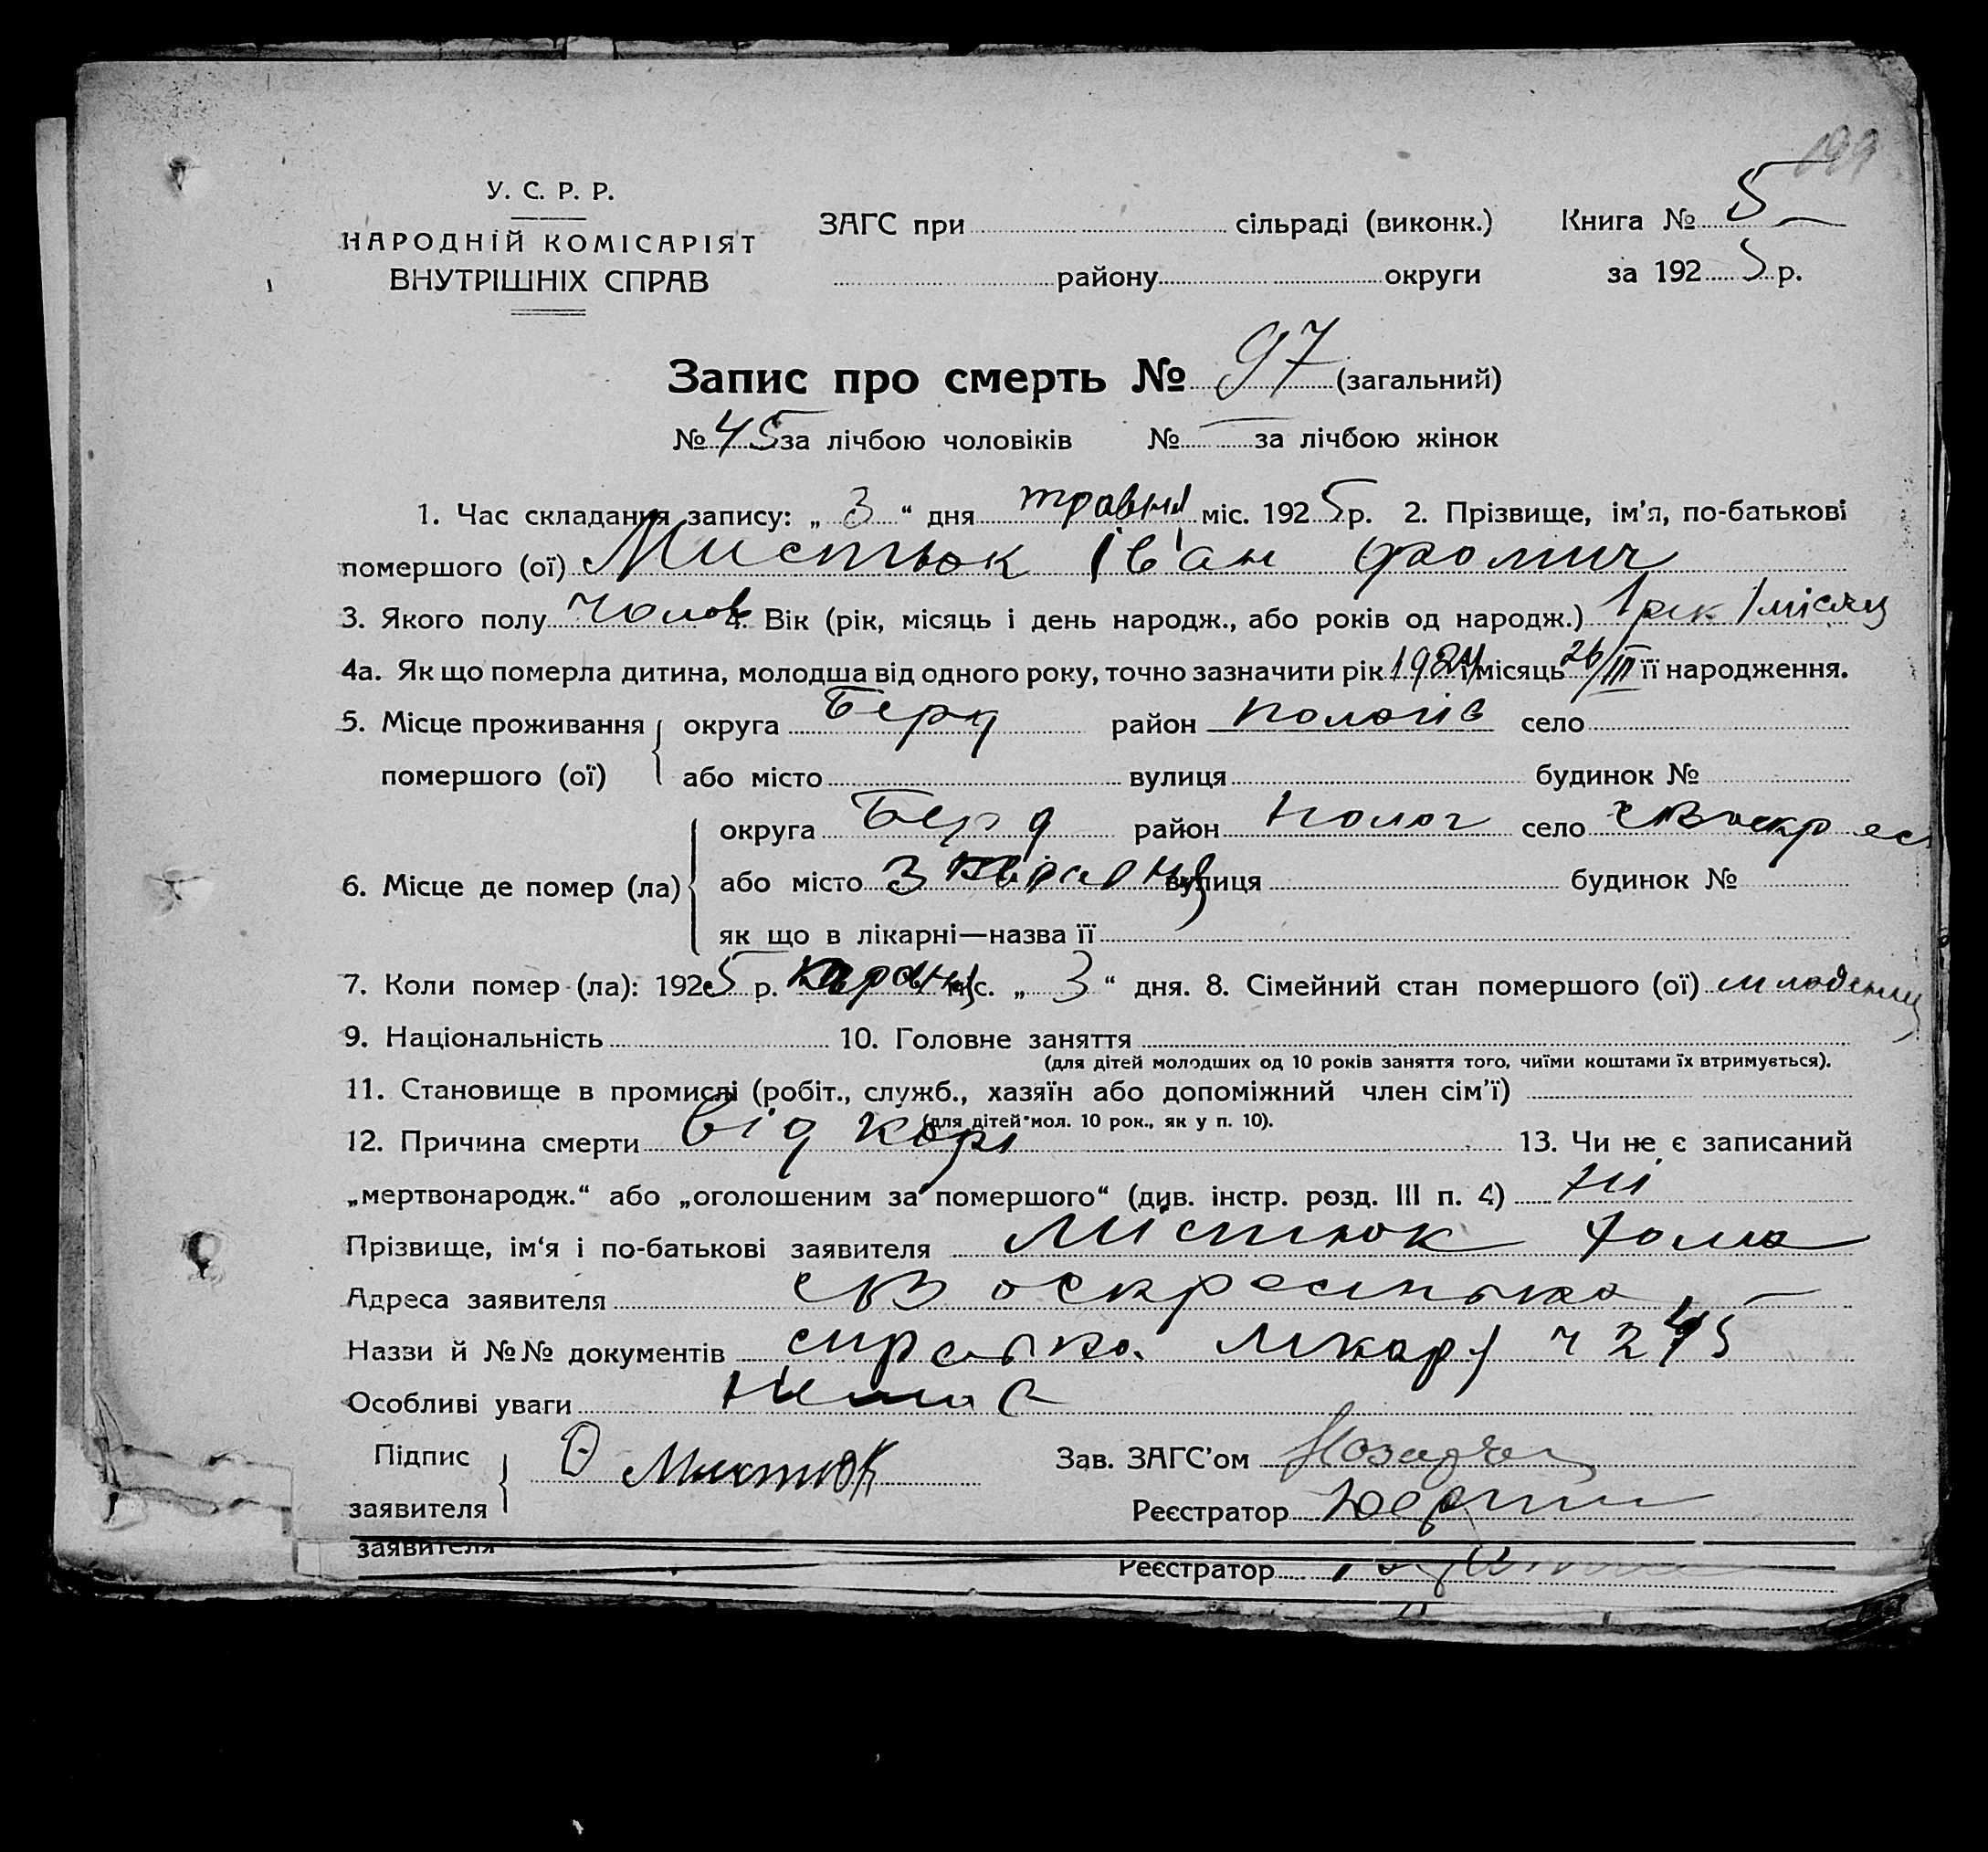 199
У. С. Р. Р.
НАРОДНІЙ КОМІСАРІЯТ
ВНУТРІШНІХ СПРАВ
ЗАГС при сільраді (виконк.)
району округи
Книга № 5
за 1925 р.
Запис про смерть № 97 (загальний)
№ 45 за лічбою чоловіків № — за лічбою жінок
1. Час складання запису: „3“ дня травня міс. 1925 р. 2. Прізвище, ім’я, по-батькові
помершого (ої) Мистюк Іван Фомич
3. Якого полу Чолов 4. Вік (рік, місяць і день народж., або років од народж.) 1 рік 1 місяц
4а. Як що померла дитина, молодша від одного року, точно зазначити рік 1924 і місяць 26/III її народження.
5. Місце проживання округа Берд район Пологів село
помершого (ої) або місто вулиця будинок №
6. Місце де помер (ла) округа Берд район Полог село Воскрес
або місто 3 вулиця будинок №
як що в лікарні—назва її
7. Коли помер (ла): 1925 р. міс. „3“ дня. 8. Сімейний стан помершого (ої) младенец
9. Національність 10. Головне заняття
(для дітей молодших од 10 років заняття того, чиїми коштами їх втримується).
11. Становище в промислі (робіт., служб., хазяїн або допоміжний член сім’ї)
(для дітей мол. 10 рок., як у п. 10).
12. Причина смерти від корі 13. Чи не є записаний
„мертвонародж.“ або „оголошеним за помершого“ (див. інстр. розд. III п. 4) ні
Прізвище, ім‘я і по-батькові заявителя Містюк Фома
Адреса заявителя Воскресенька
Назви й №№ документів справка лікар ч 245
Особливі уваги Нема
Підпис
заявителя Ѳ Мистюк
Зав. ЗАГС’ом
Реєстратор
заявителя
Реєстратор